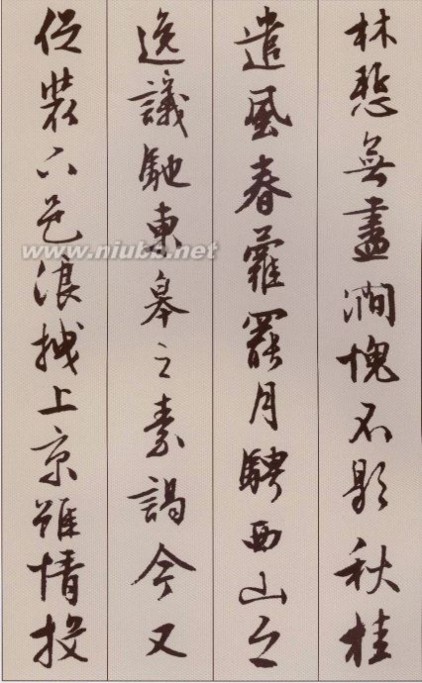 林慙無盡澗愧不歇秋桂
遣風春蘿罷月騁西山之
逸議馳東皋之素謁今又
促裝下邑浪拽上京雖情投
www.niubb.net